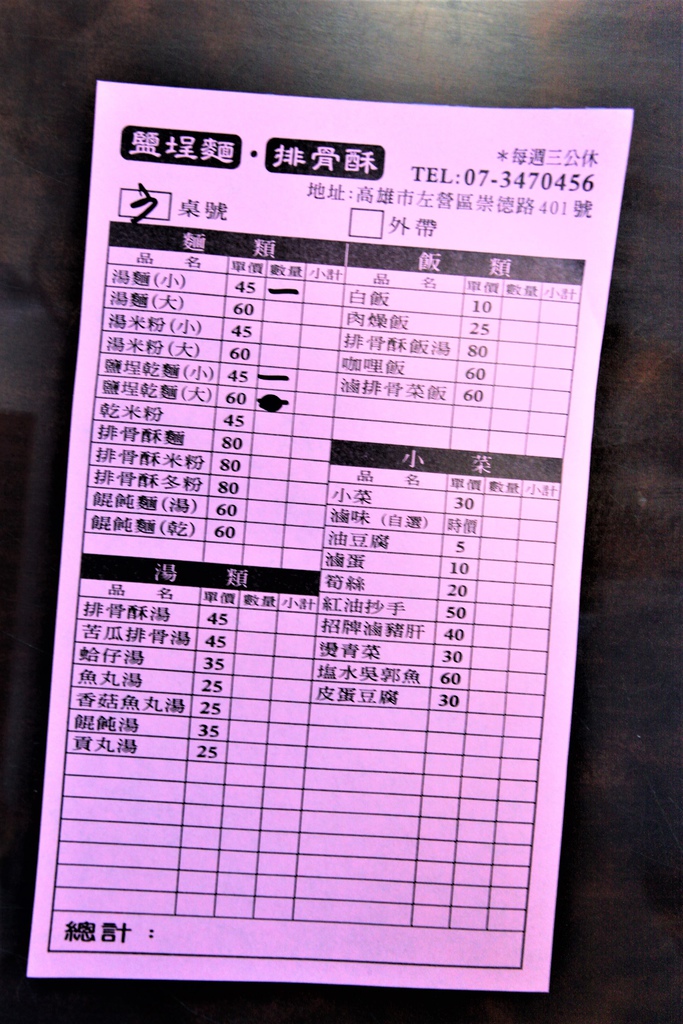 鹽埕麵・排骨酥
＊每週三公休
TEL:07-3470456
地址:高雄市左營區崇德路401號
桌號
外帶
麵 類
品 名 單價 數量 小計
湯麵(小) 45 一
湯麵(大) 60
湯米粉(小) 45
湯米粉(大) 60
鹽埕乾麵(小) 45 一
鹽埕乾麵(大) 60
乾米粉 45
排骨酥麵 80
排骨酥米粉 80
排骨酥冬粉 80
餛飩麵(湯) 60
餛飩麵(乾) 60
湯 類
品 名 單價 數量 小計
排骨酥湯 45
苦瓜排骨湯 45
蛤仔湯 35
魚丸湯 25
香菇魚丸湯 25
餛飩湯 35
貢丸湯 25
飯 類
品 名 單價 數量 小計
白飯 10
肉燥飯 25
排骨酥飯湯 80
咖哩飯 60
滷排骨菜飯 60
小 菜
品 名 單價 數量 小計
小菜 30
滷味（自選） 時價
油豆腐 5
滷蛋 10
筍絲 20
紅油抄手 50
招牌滷豬肝 40
燙青菜 30
塩水吳郭魚 60
皮蛋豆腐 30
總計：